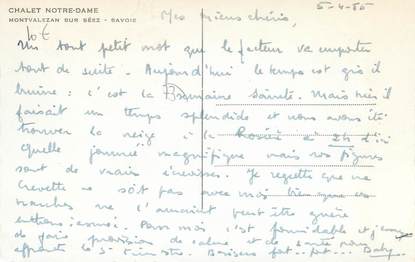 CHALET NOTRE-DAME
MONTVALEZAN SUR SÉEZ - SAVOIE
5-4-50
Mes Mieux chéris,
Un tout petit mot que le facteur va emporter
tout de suite. Aujourd'hui le temps est gris il
bruine : c'est la Semaine Sainte. Mais hier il
faisait un temps splendide et nous avons été
trouver la neige à la Rosière à 2h d'ici
Quelle journée magnifique mais nos figures
sont de vraies écrevisses. Je regrette que ma
Crevette ne soit pas avec moi bien que ces
marches ne l'auraient peut être guère
enthousiasmé. Pour moi c'est formidable et
de faire provision de calme et de santé pour
affronter le 3e Trimestre. Baisers